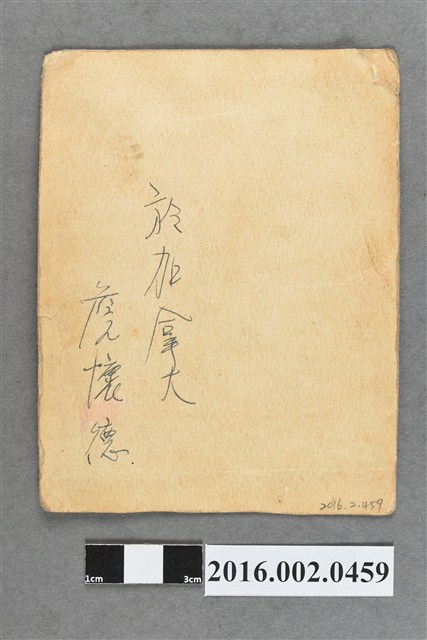 於加拿大
詹懷德
2016.2.459
1cm
3cm
2016.002.0459